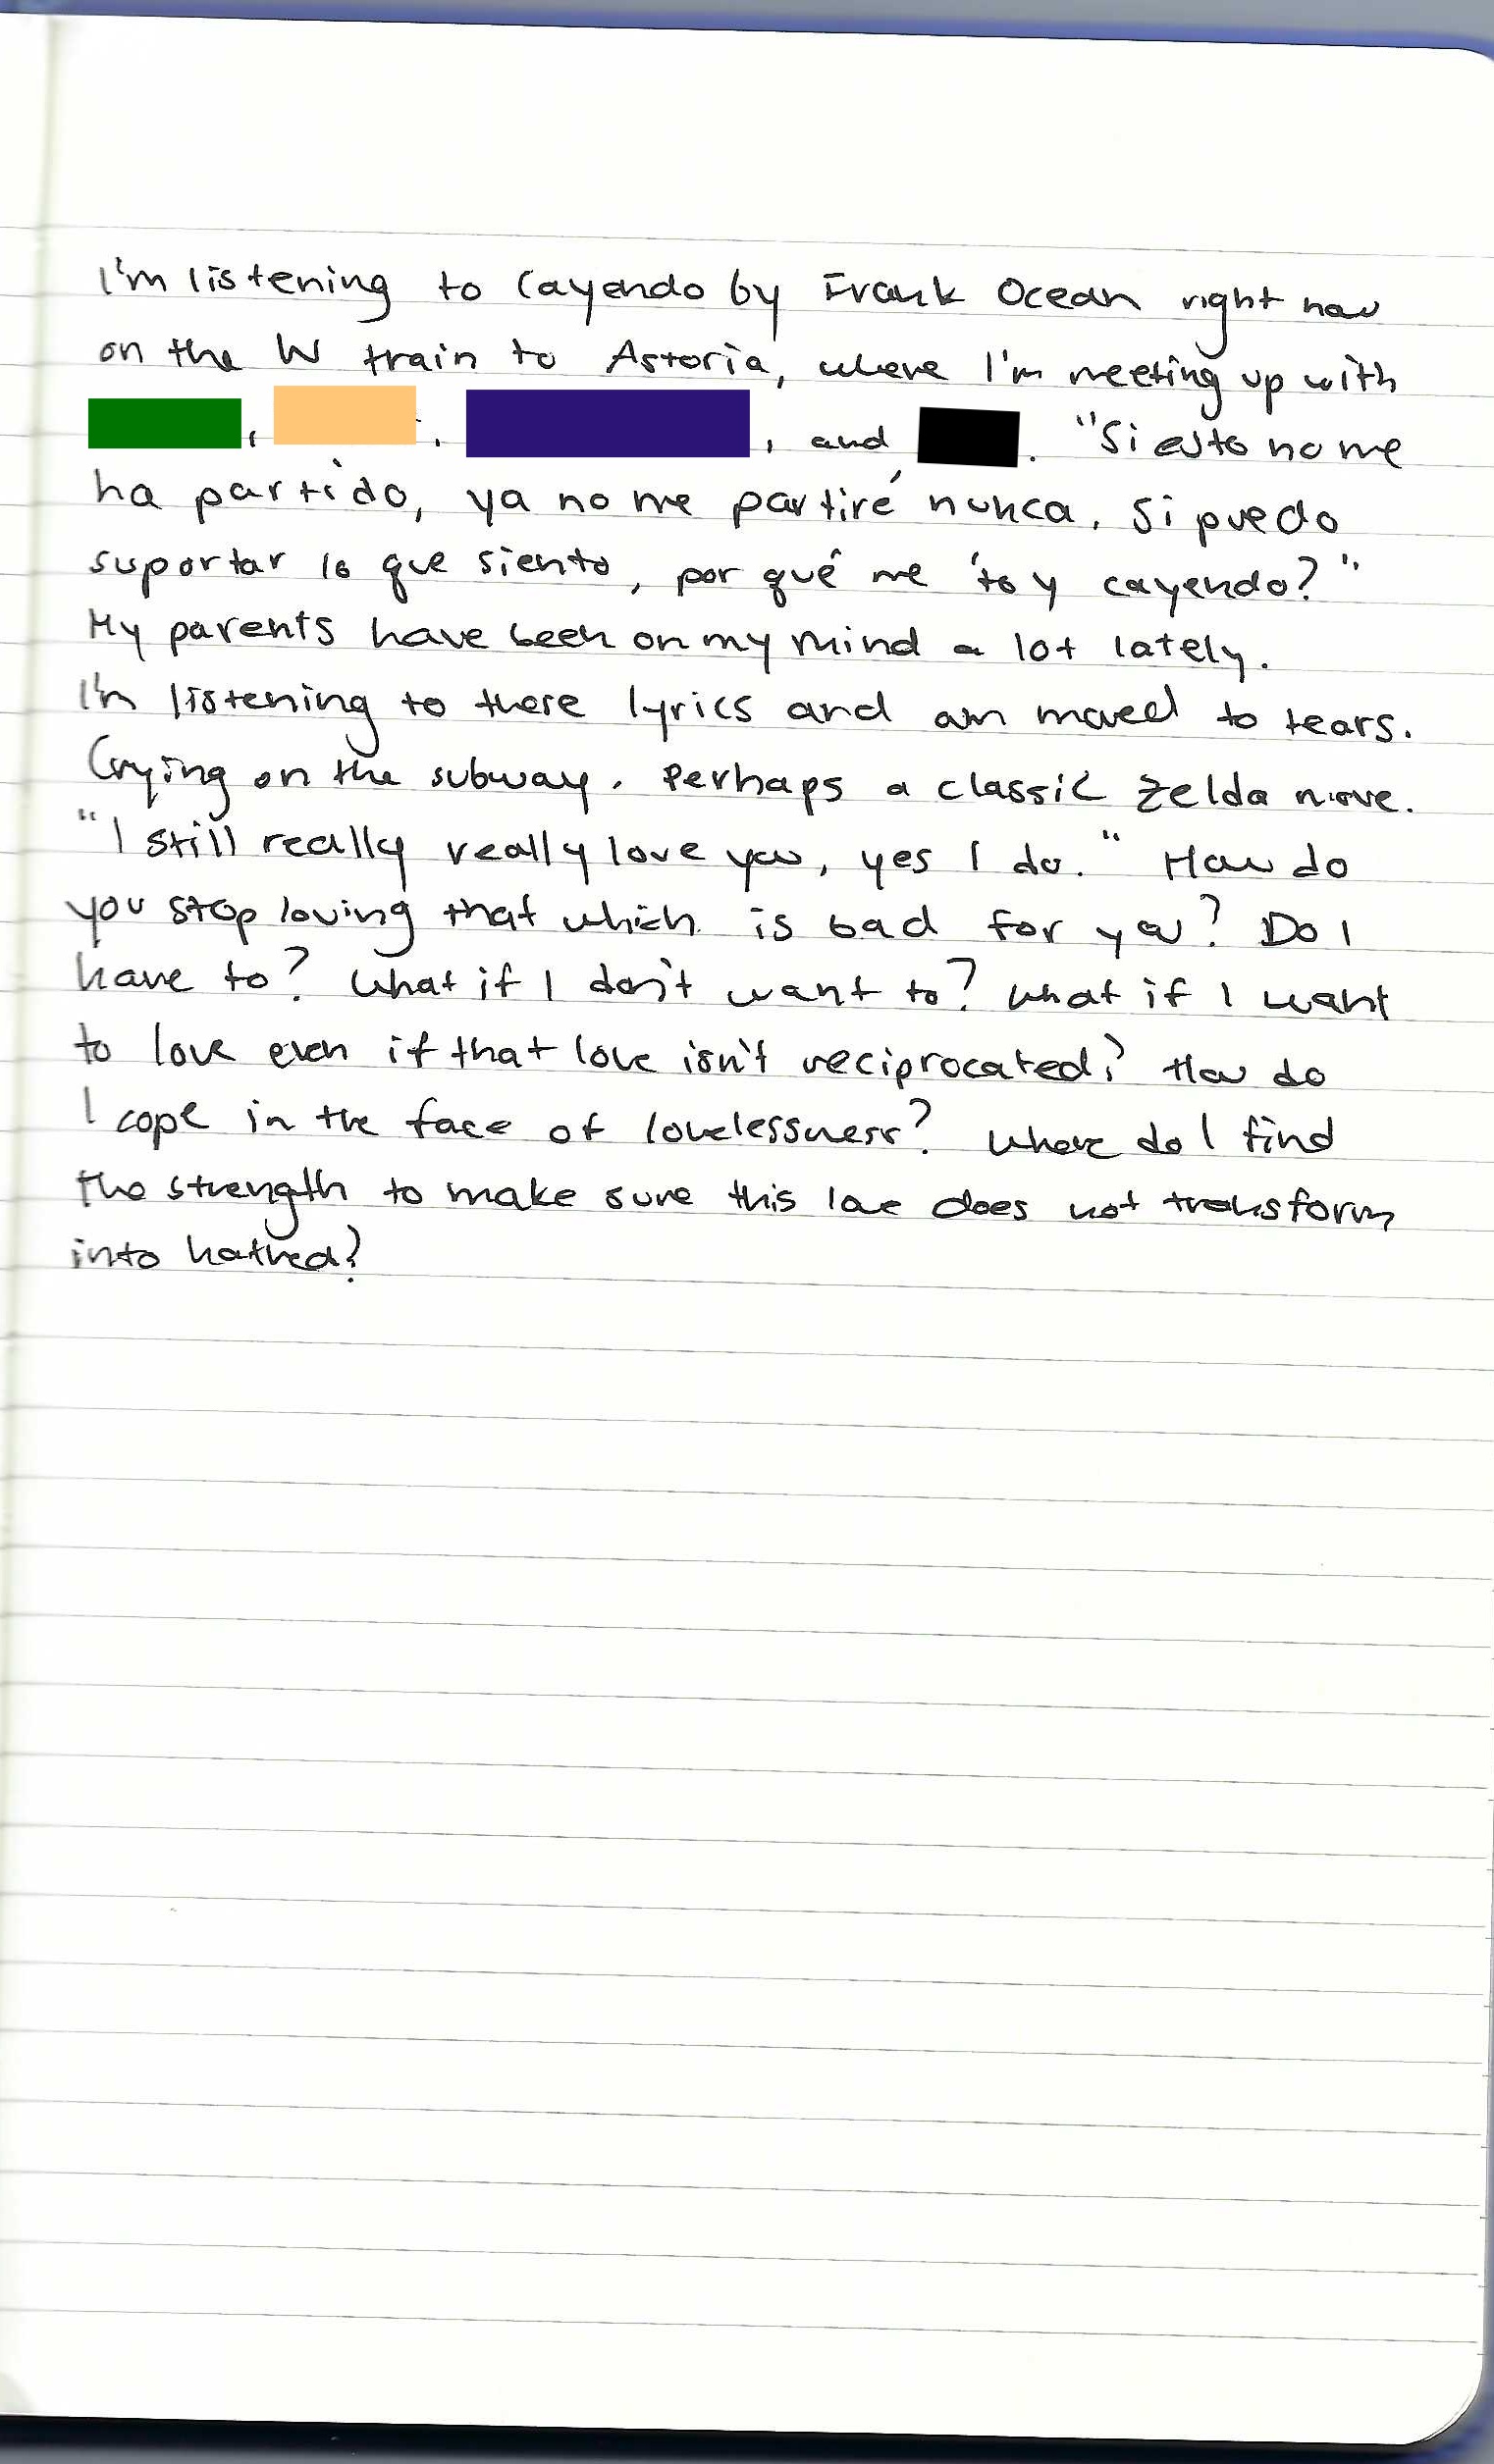 I'm listening to Cayendo by Frank Ocean right now
on the W train to Astoria, where I'm meeting up with
, , , and . "Si esto no me
ha partido, ya no me partiré nunca, si puedo
suportar lo que siento, por qué me 'toy cayendo?"
My parents have been on my mind a lot lately.
I'm listening to these lyrics and am moved to tears.
Crying on the subway. Perhaps a classic Zelda move.
"I still really really love you, yes I do." How do
you stop loving that which is bad for you? Do I
have to? What if I don't want to? What if I want
to love even if that love isn't reciprocated? How do
I cope in the face of lovelessness? Where do I find
the strength to make sure this love does not transform
into hatred?